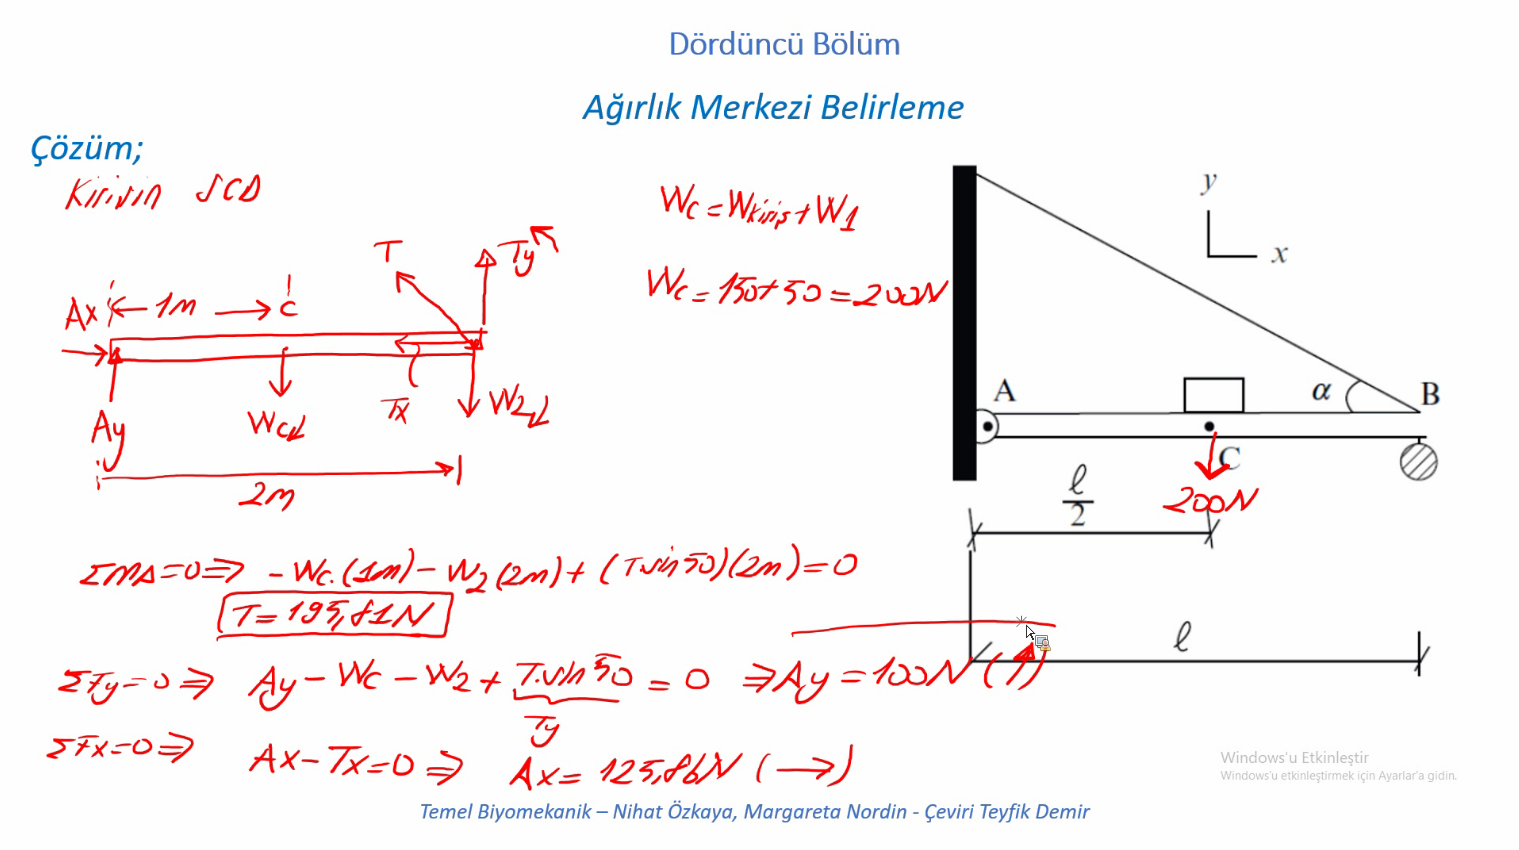 Dördüncü Bölüm
Ağırlık Merkezi Belirleme
Çözüm;
Kirişin SCD
Wc = Wkiriş + W1
Wc = 150 + 50 = 200N
T
Ty
Ax
1m
C
Tx
W2
Ay
Wc
2m
y
x
A
α
B
C
ℓ/2
200N
ℓ
ΣMA=0 ⇒ -Wc.(1m) - W2(2m) + (T.sin50)(2m) = 0
T = 195,81N
ΣFy=0 ⇒ Ay - Wc - W2 + T.sin50 = 0 ⇒ Ay = 100N (↑)
Ty
ΣFx=0 ⇒ Ax - Tx = 0 ⇒ Ax = 125,86N (→)
Windows'u Etkinleştir
Windows'u etkinleştirmek için Ayarlar'a gidin.
Temel Biyomekanik – Nihat Özkaya, Margareta Nordin - Çeviri Teyfik Demir